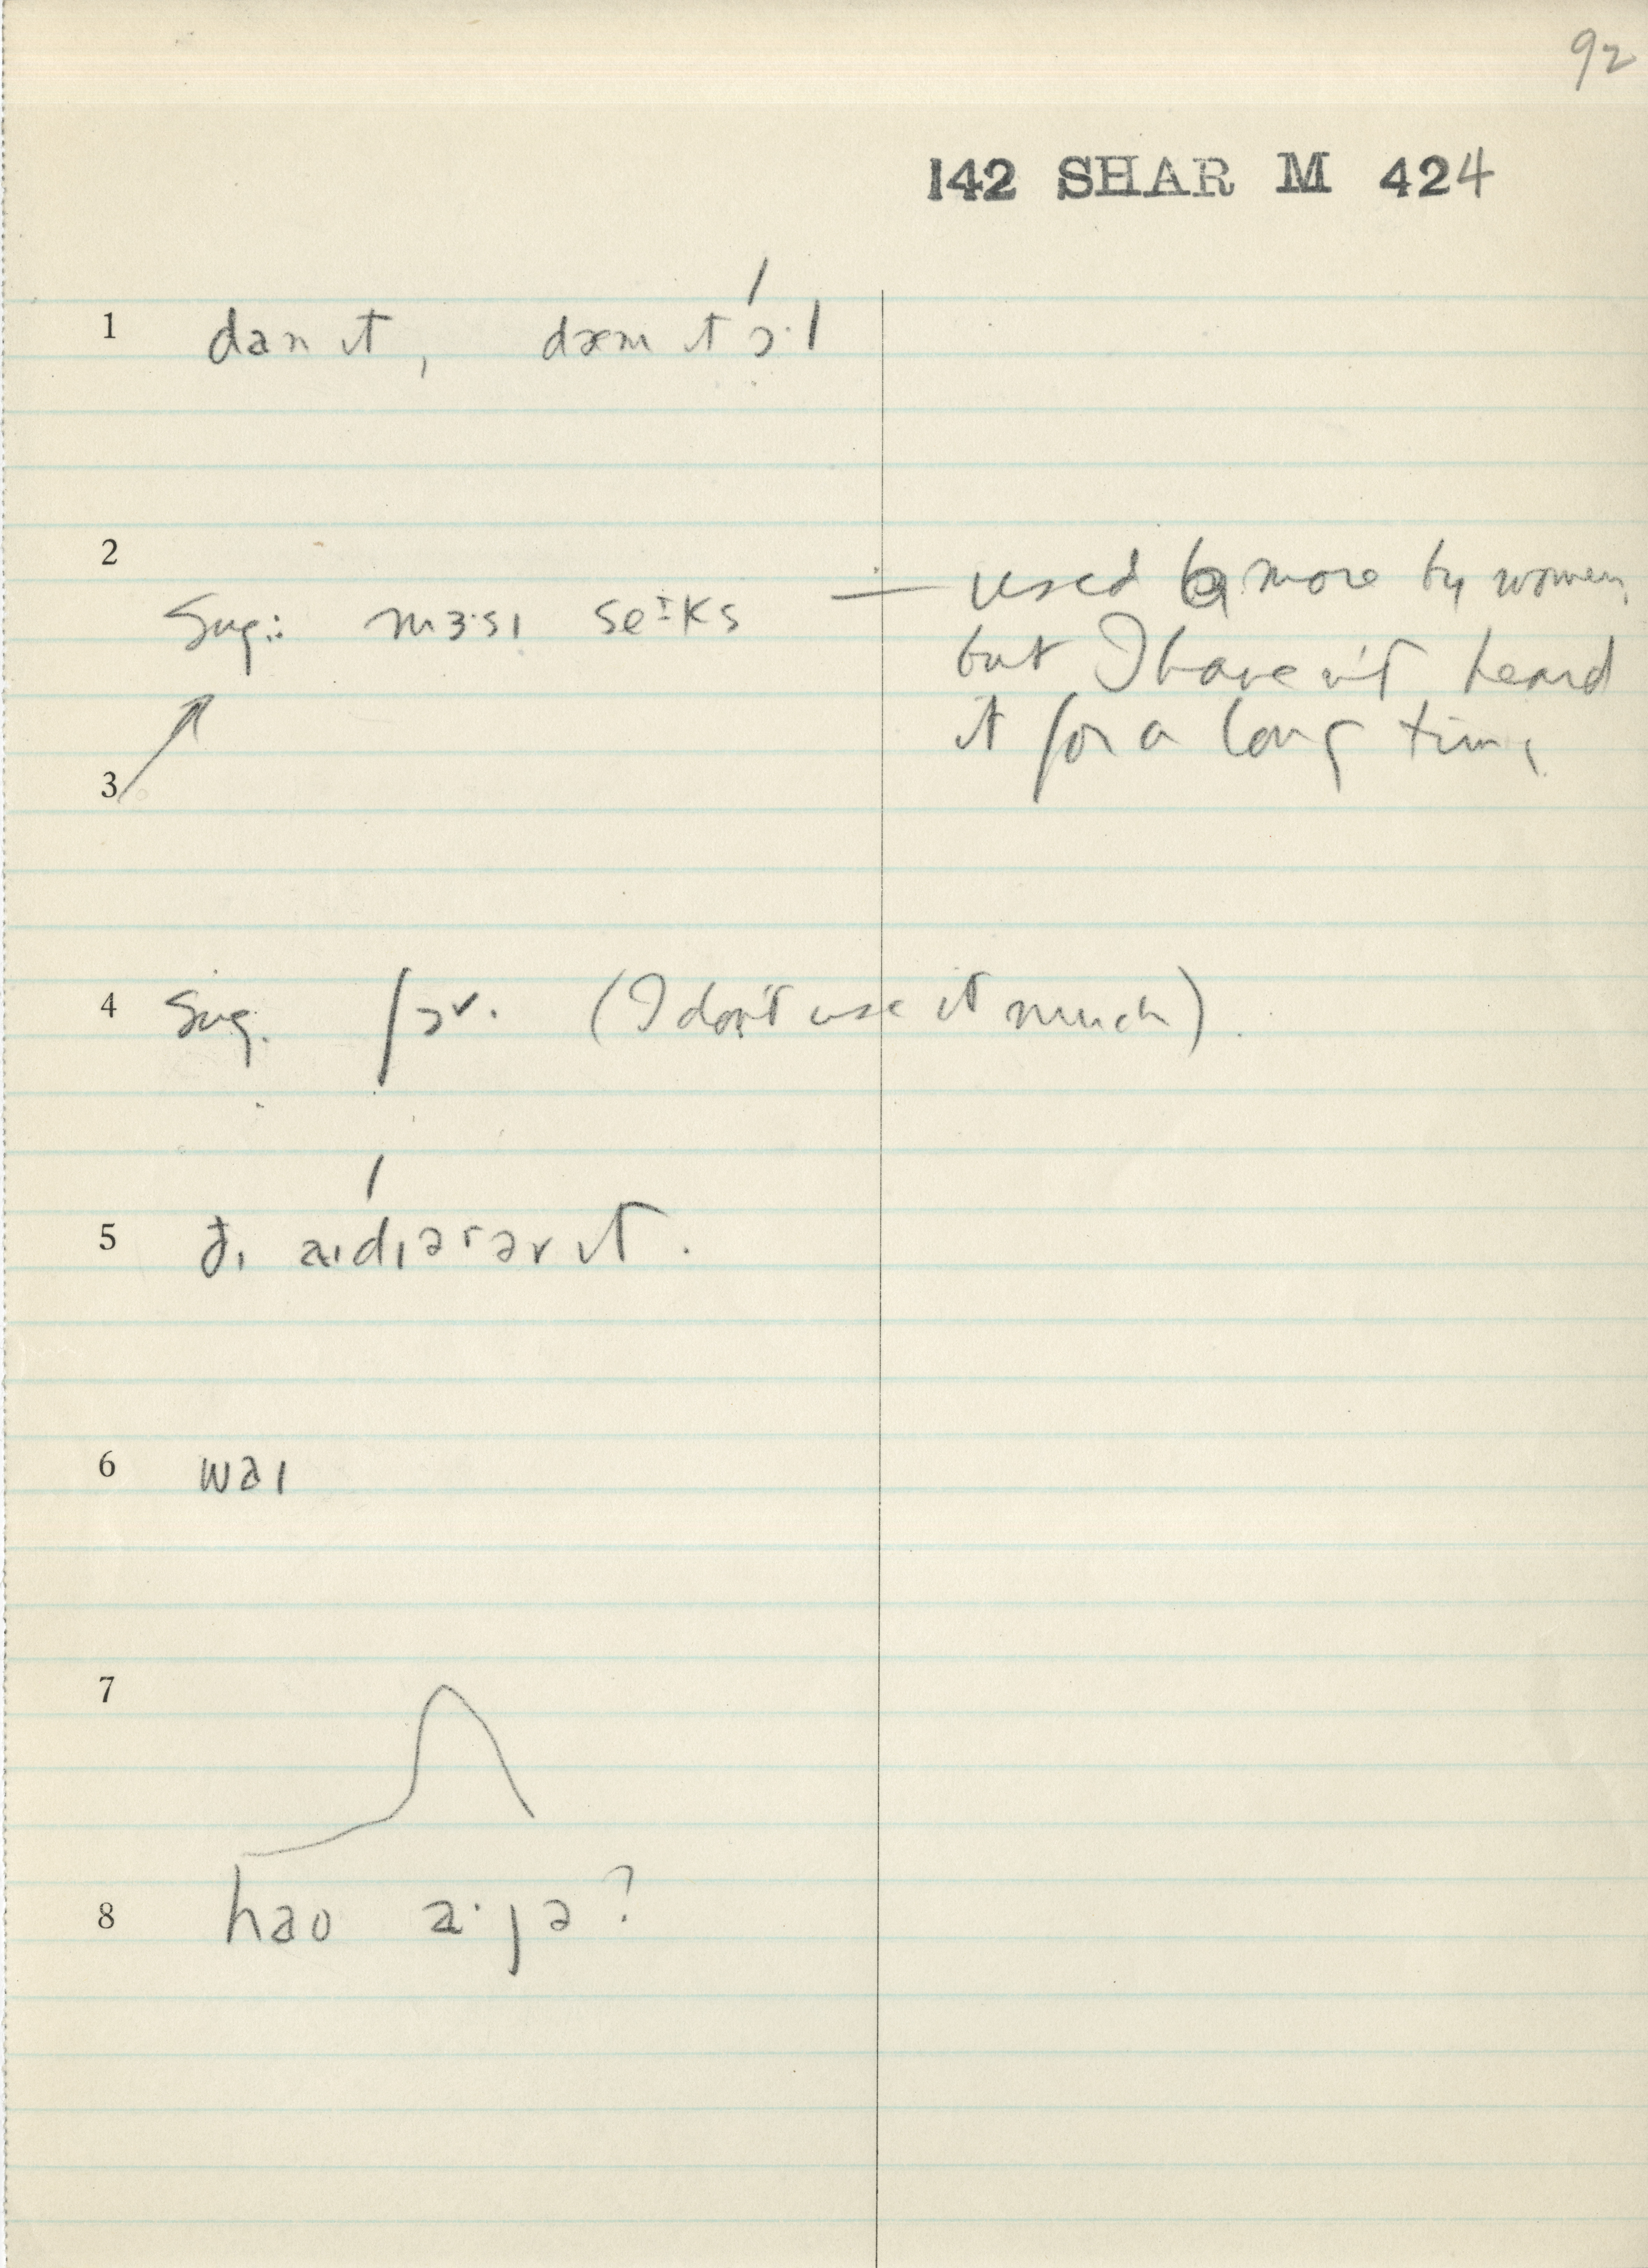 92
142 SHAR M 424
1 dan ɪt, dæm ɪt ɔ·l
2
Sug.: mɜ·sɪ seɪks — used more by women,
but I haven't heard
it for a long time
3
4 Sug. ʃɔ˅. (I don't use it much).
5 ðɪ aɪdɪər əv ɪt.
6 waɪ
7
8 hao a·jə?